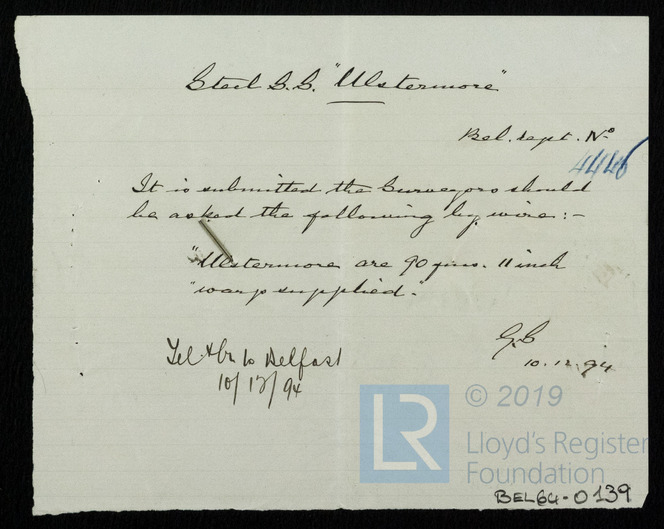 Steel S.S. "Ulstermore"
Bel. rept. No
4446
It is submitted the Surveyors should
be asked the following by wire:-
"Ulstermore are 90 fms. 11 inch
"warp supplied."
10.12.94
Tel to Belfast
10/12/94
© 2019
LR
Lloyd's Register
Foundation
BEL64-0139